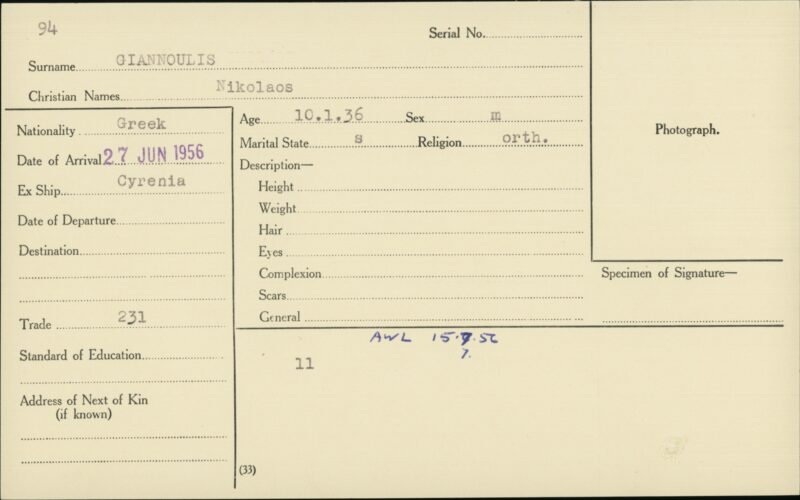 94
Serial No.
Surname GIANNOULIS
Christian Names Nikolaos
Nationality Greek
Date of Arrival 27 JUN 1956
Ex Ship Cyrenia
Date of Departure
Destination
Trade 231
Standard of Education
Address of Next of Kin
(if known)
Age 10.1.36 Sex m
Marital State s Religion orth.
Description—
Height
Weight
Hair
Eyes
Complexion
Scars
General
Photograph.
Specimen of Signature—
AWL 15.9.56
7.
11
(33)